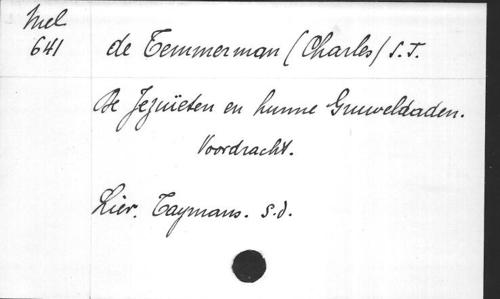 Mel
641
de Temmerman (Charles) S.J.
De Jezuïeten en hunne Gruweldaden.
Voordracht.
Lier. Taymans. S.d.